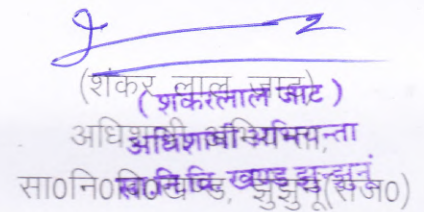 (शंकर लाल जाट)
(शंकरलाल जाट)
अधिशाषी अभियन्ता
अधिशाषी अभियन्ता
सा०नि०वि०खण्ड, झुंझुनू(राज०)
सा.नि.वि. खण्ड झुन्झुनूं